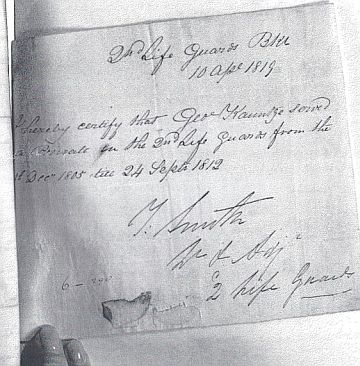 2nd Life Guards Bks
10 Apl 1819
hereby certify that Geo Kauntze served
Private in the 2nd Life Guards from the
Decr 1805 till 24 Septr 1812
T. Smith
& Adjt
2 Life Guards
6 -